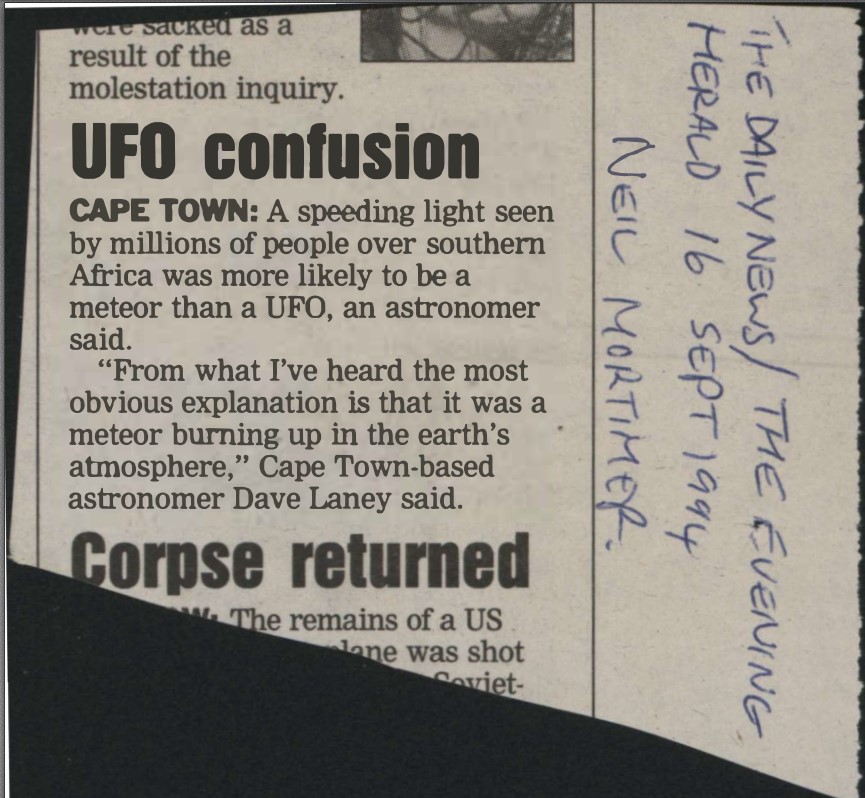 were sacked as a
result of the
molestation inquiry.
UFO confusion
CAPE TOWN: A speeding light seen
by millions of people over southern
Africa was more likely to be a
meteor than a UFO, an astronomer
said.
“From what I've heard the most
obvious explanation is that it was a
meteor burning up in the earth's
atmosphere,” Cape Town-based
astronomer Dave Laney said.
Corpse returned
The remains of a US
plane was shot
Soviet-
THE DAILY NEWS/ THE EVENING
HERALD 16 SEPT 1994
NEIL MORTIMER.